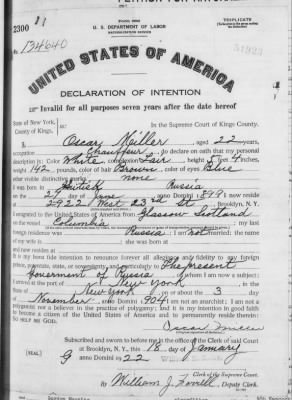 TRIPLICATE
2300
U. S. DEPARTMENT OF LABOR
NATURALIZATION SERVICE
No. 134640
UNITED STATES OF AMERICA
DECLARATION OF INTENTION
Invalid for all purposes seven years after the date hereof
State of New York,
County of Kings, ss:
In the Supreme Court of Kings County.
I, Oscar Miller, aged 22 years,
occupation Chauffeur, do declare on oath that my personal
description is: Color White, complexion Fair, height 5 feet 4 inches,
weight 142 pounds, color of hair Brown, color of eyes Blue
other visible distinctive marks none
I was born in Russia
on the 27 day of June, anno Domini 1899; I now reside
at 2922 West 23rd St, Brooklyn, N.Y.
I emigrated to the United States of America from Glasgow Scotland
on the vessel Columbia; my last
foreign residence was Russia; I am not married; the name
of my wife is; she was born at
and now resides at
It is my bona fide intention to renounce forever all allegiance and fidelity to any foreign
prince, potentate, state, or sovereignty, and particularly to The present
Government of Russia, of whom I am now a subject;
I arrived at the port of New York, in the
State of New York, on or about the 3 day
of November, anno Domini 1904; I am not an anarchist; I am not a
polygamist nor a believer in the practice of polygamy; and it is my intention in good faith
to become a citizen of the United States of America and to permanently reside therein:
SO HELP ME GOD.
Oscar Miller
Subscribed and sworn to before me in the office of the Clerk of said Court
at Brooklyn, N.Y., this 18 day of January
anno Domini 1922
[SEAL]
Clerk of the Supreme Court.
By William J. Farrell, Deputy Clerk.